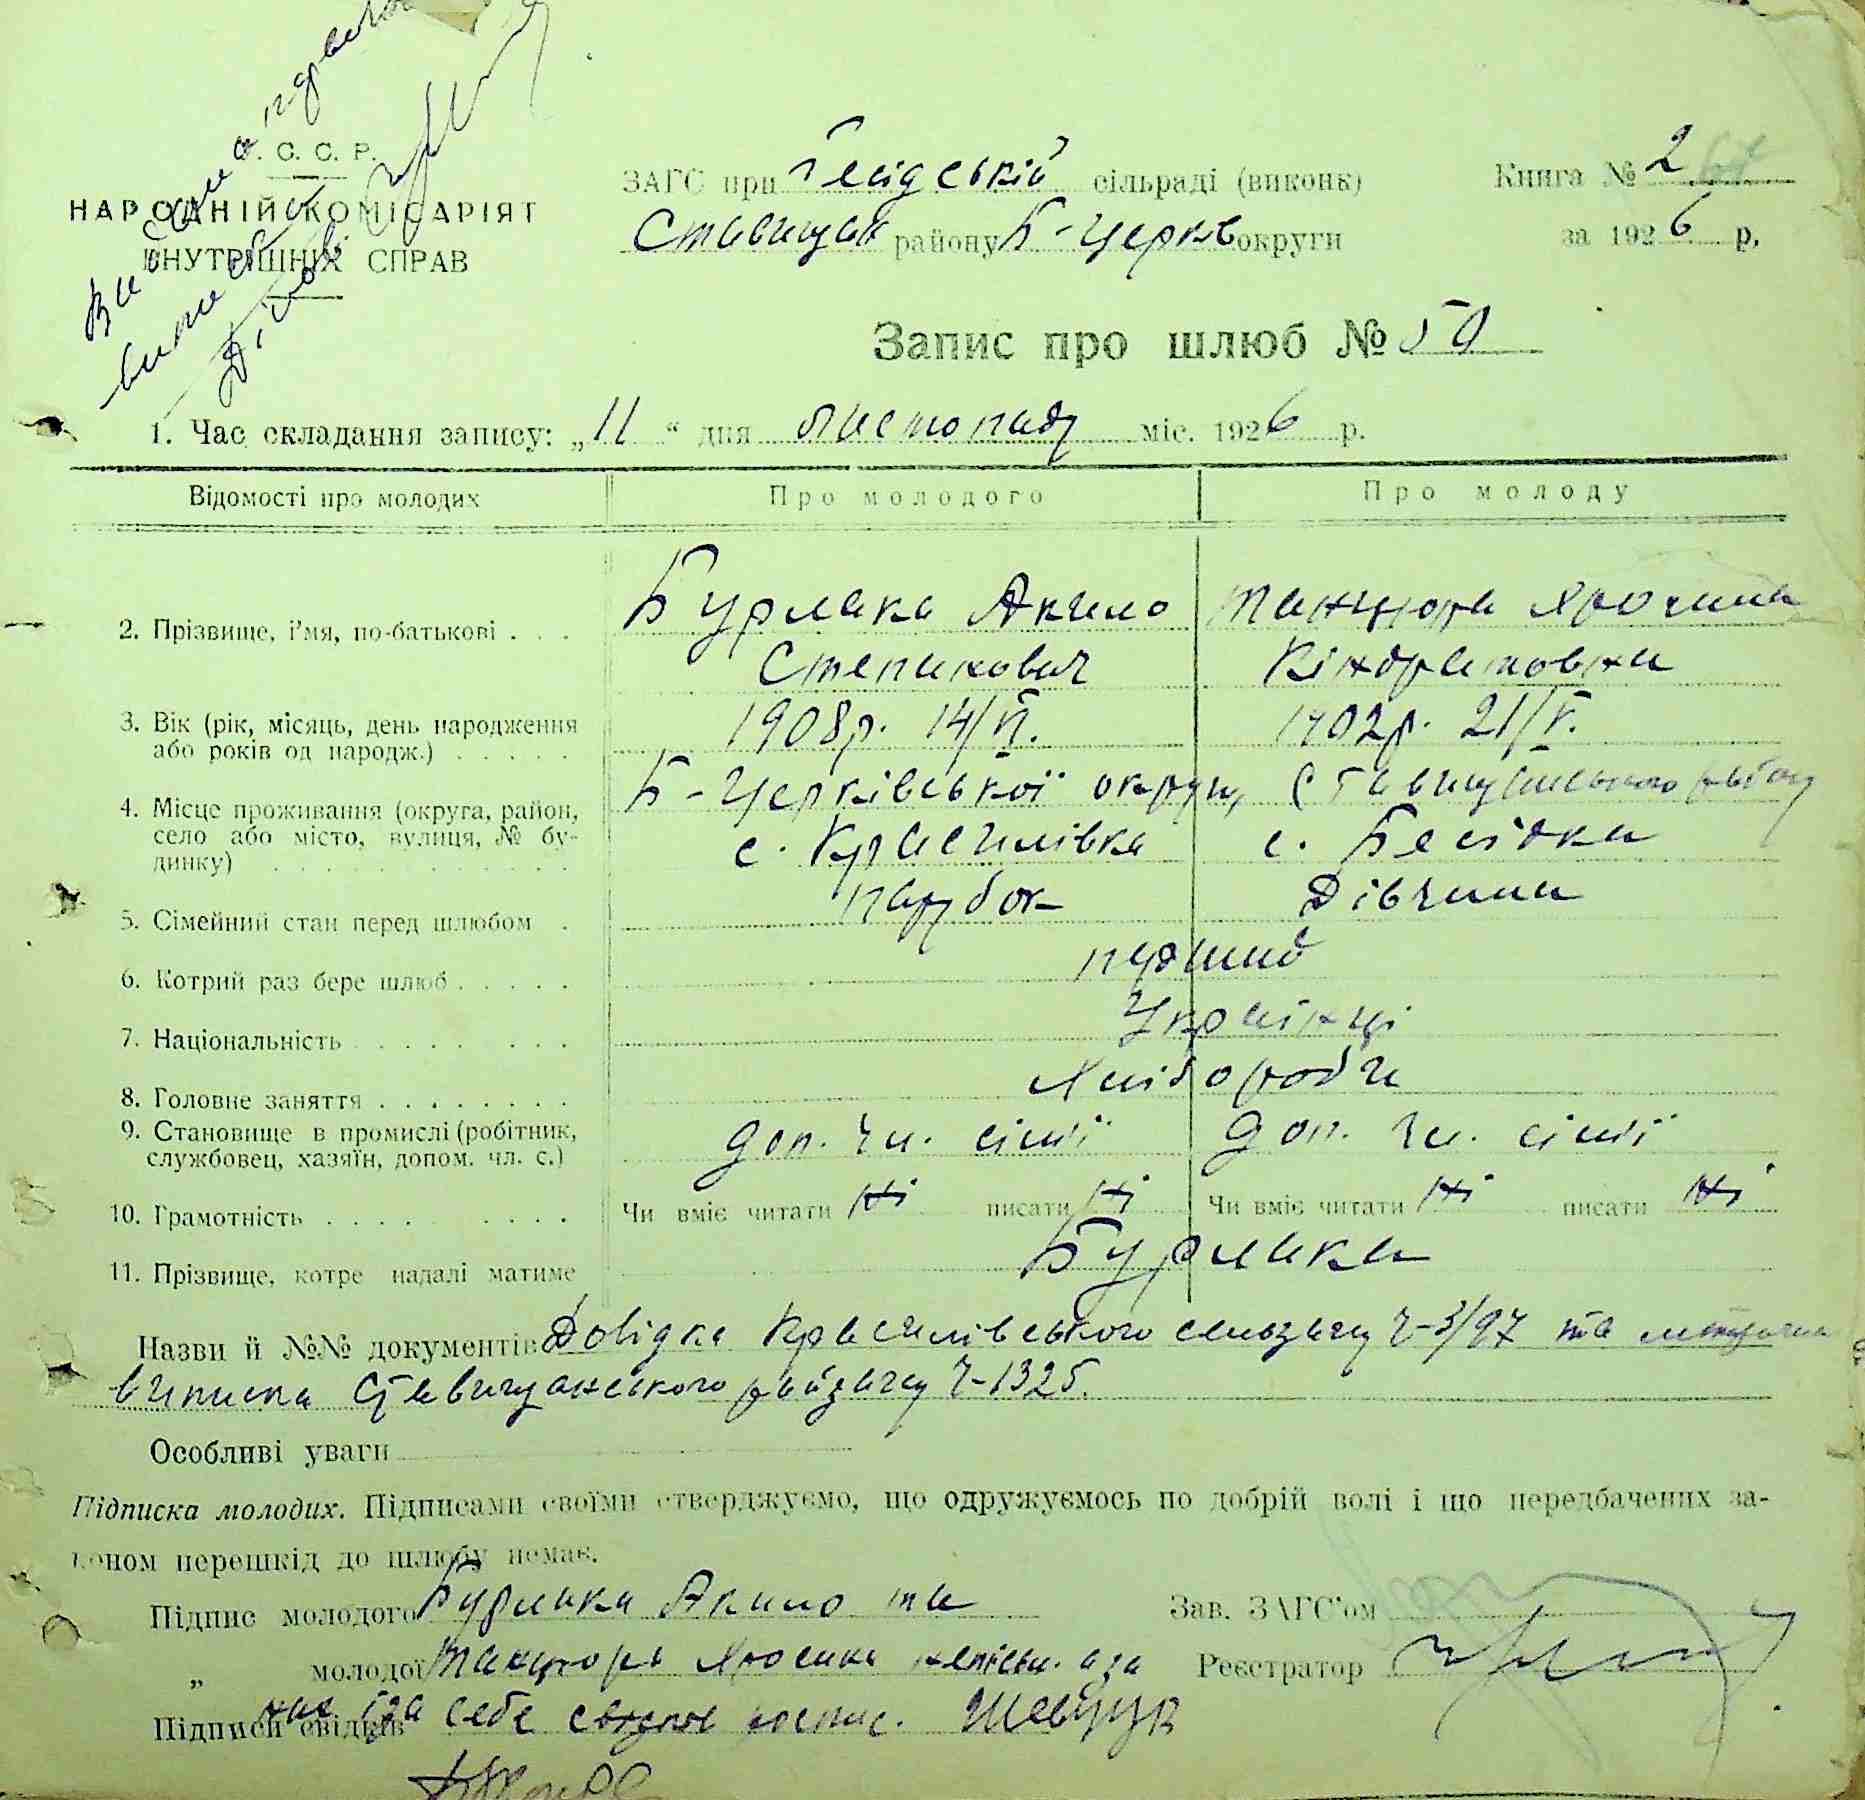 У. С. С. Р.
НАРОДНІЙ КОМІСАРІЯТ
ВНУТРІШНІХ СПРАВ
ЗАГС при сільраді (виконк)
Ставищан району Б-Церків округи
Книга № 2
за 1926 р.
Запис про шлюб № 50
1. Час складання запису: „11“ дня листопаду міс. 1926 р.
Відомості про молодих
Про молодого
Про молоду
2. Прізвище, і'мя, по-батькові . . .
Бурлака Акило
Степанович
Танцюра
Кіндратовна
3. Вік (рік, місяць, день народження
або років од народж.) . . . . .
1908р. 14/VI.
1902р. 21/V.
4. Місце проживання (округа, район,
село або місто, вулиця, № бу-
динку) . . . . . . . . . . . .
Б-Церківської округи, Ставищанського району
с. Красилівка
с. Бесідка
5. Сімейний стан перед шлюбом .
парубок
Дівчина
6. Котрий раз бере шлюб . . . . .
перший
7. Національність . . . . . . . .
Українці
8. Головне заняття . . . . . . . .
Хлібороби
9. Становище в промислі (робітник,
службовец, хазяїн, допом. чл. с.)
доп. чл. сімї
доп. чл. сімї
10. Грамотність . . . . . . . . .
Чи вміє читати ні писати ні
Чи вміє читати ні писати ні
11. Прізвище, котре надалі матиме
Бурлака
Назви й №№ документів Довідка Красилівського сельзагсу Ч-3/97 та
виписка Ставищанського райзагсу Ч-1325.
Особливі уваги
Підписка молодих. Підписами своїми стверджуємо, що одружуємось по добрій волі і що передбачених за-
коном перешкід до шлюбу немає.
Підпис молодого Бурлака Акило та
Зав. ЗАГС'ом
„ молодої Танцюра неписьм. а за
Реєстратор
Підписи свідків себе Шевчук